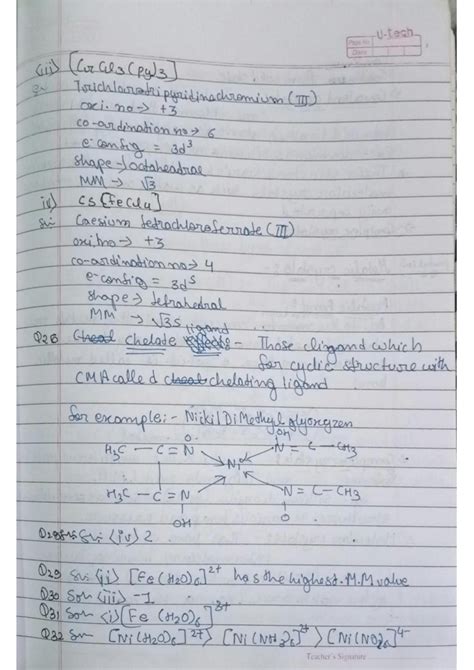 U-tech
Page No.
Date
(iii) [CrCl3(Py)3]
Trichlorotripyridinochromium (III)
oxi. no → +3
co-ardination no → 6
e-config = 3d³
shape → octahedral
MM → √3
iv) CS[FeCl4]
Sol- Caesium tetrachloroferrate (III)
oxi.no → +3
co-ardination no → 4
e-config = 3d⁵
shape → tetrahedral
MM → √35
ligand
Q28 chelate - Those cligand which
for cyclic structure with
CMA called chelating ligand
for example:- Nickil DiMethyl glyoxgzen
OH
H3C - C = N N = C - CH3
Ni
H3C - C = N N = C - CH3
OH O
<iv> 2
Q29 Sol <ii> [Fe(H2O)6]²⁺ has the highest M.M value
Q30 Soln <iii> -1
Q31 Soln <i> [Fe(H2O)6]³⁺
Q32 Soln [Ni(H2O)6]²⁺ > [Ni(NH3)6]²⁺ > [Ni(NO2)6]⁴⁻
Teacher's Signature